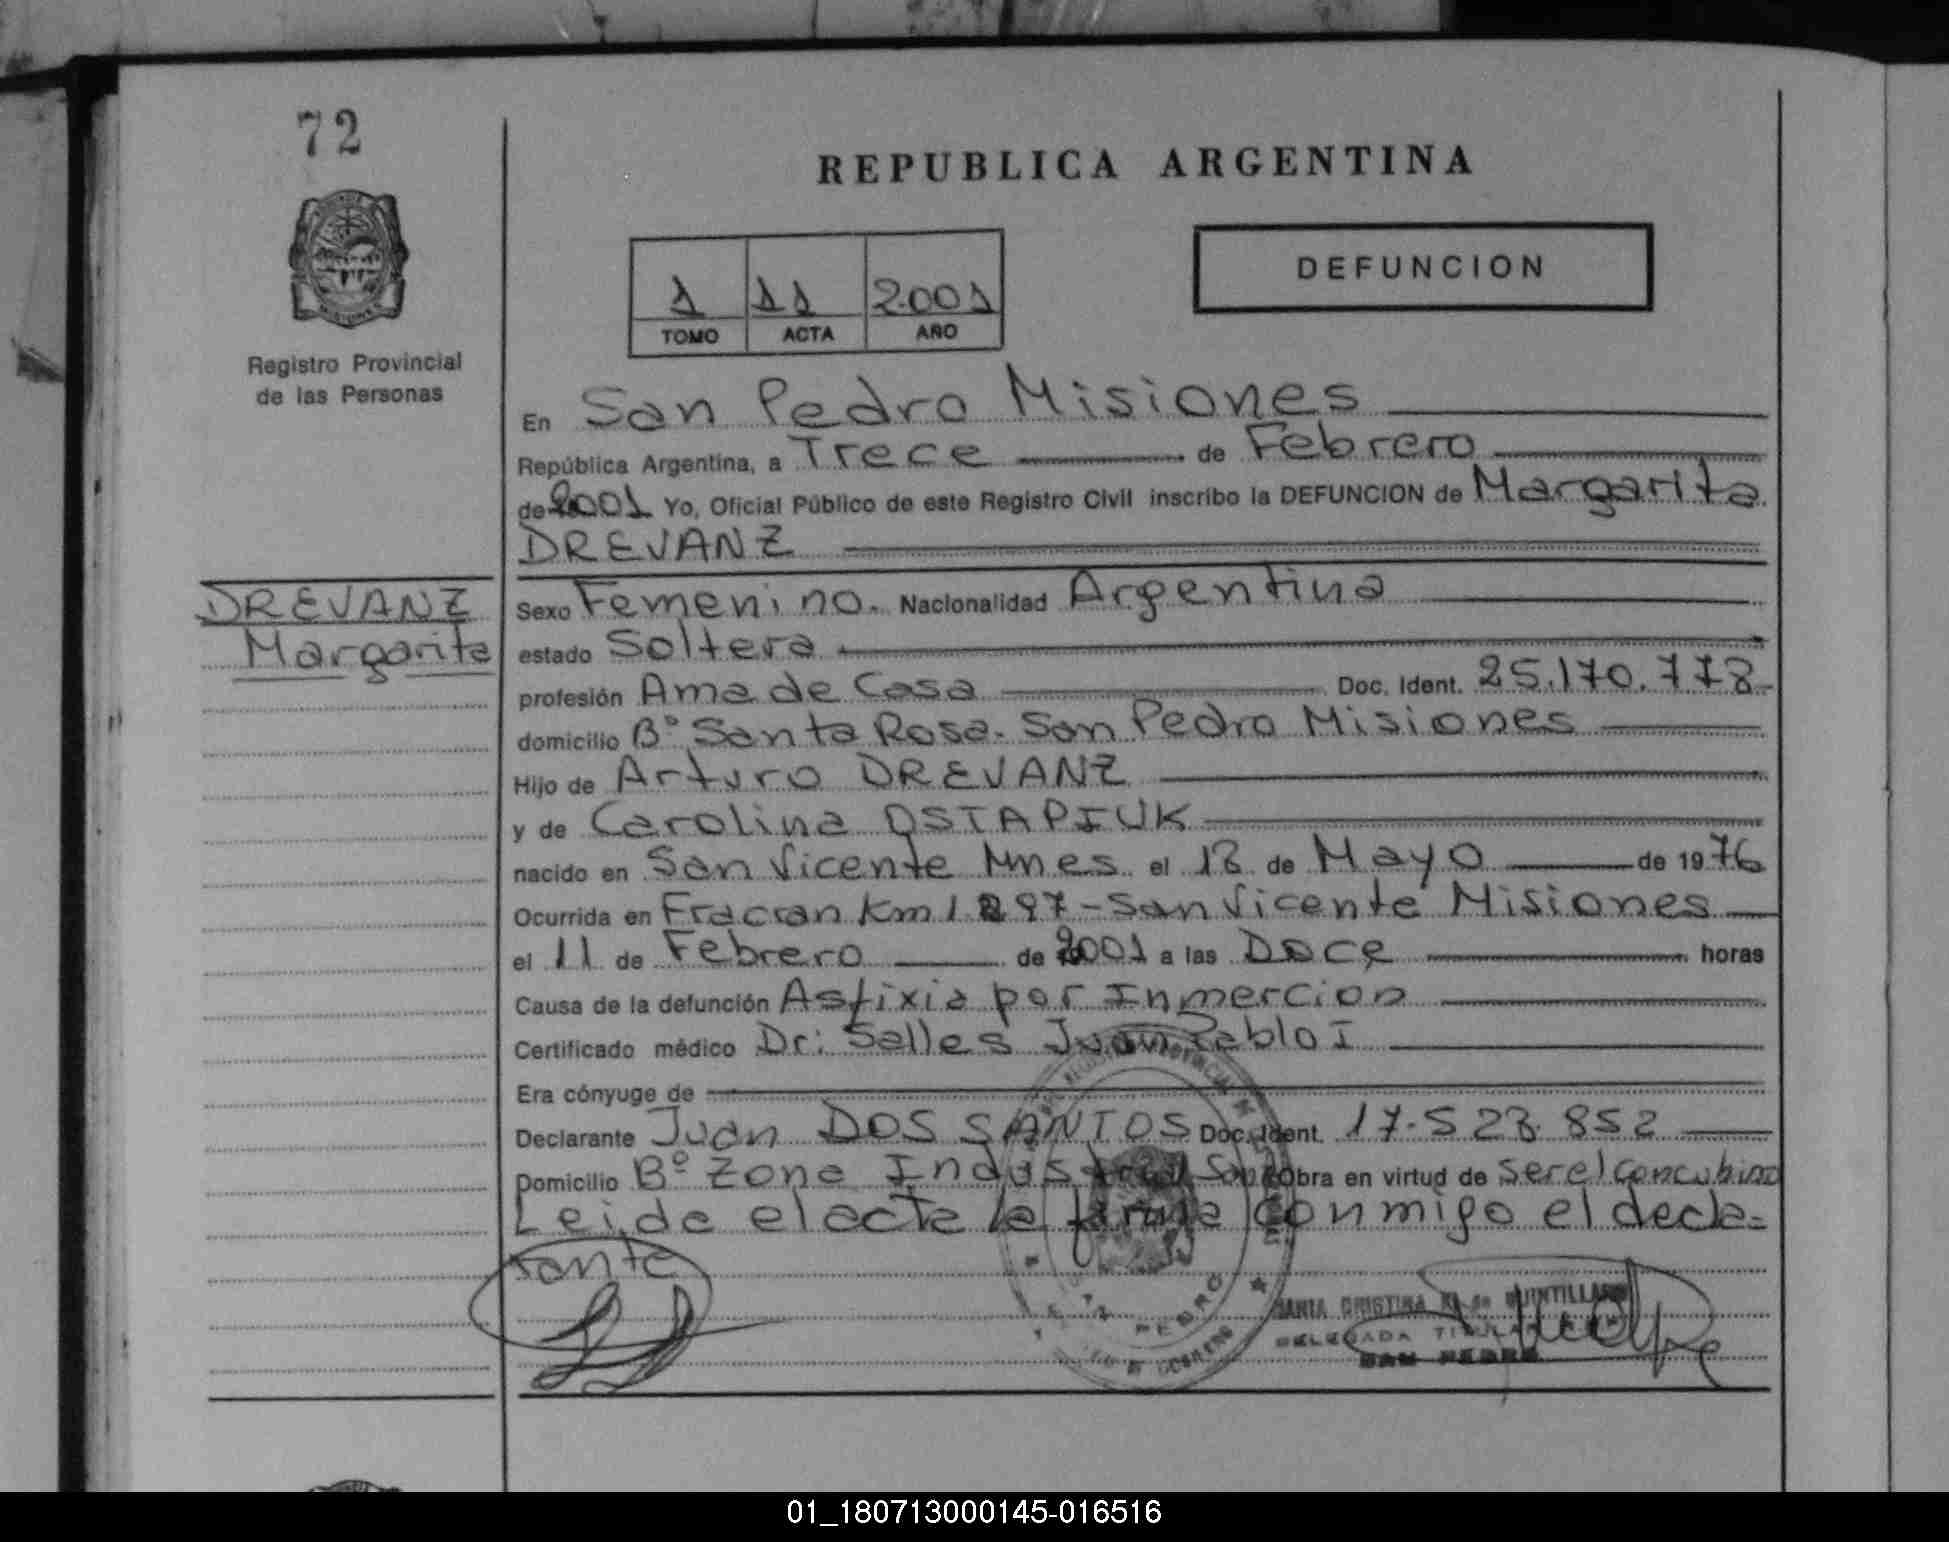 72
REPUBLICA ARGENTINA
DEFUNCION
1 11 2001
TOMO ACTA AÑO
Registro Provincial
de las Personas
En San Pedro Misiones
República Argentina, a Trece de Febrero
de 2001 Yo, Oficial Público de este Registro Civil inscribo la DEFUNCION de Margarita
DREVANZ
DREVANZ
Margarita
Sexo Femenino. Nacionalidad Argentina
estado Soltera
profesión Ama de Casa Doc. Ident. 25.170.778
domicilio Bº Santa Rosa. San Pedro Misiones
Hijo de Arturo DREVANZ
y de Carolina OSTAPIUK
nacido en San Vicente Mnes. el 18 de Mayo de 1976
Ocurrida en Fracran Km 1297-San Vicente Misiones
el 11 de Febrero de 2001 a las Doce horas
Causa de la defunción Asfixia por Inmercion
Certificado médico Dr: Salles Juan Pablo I
Era cónyuge de
Declarante Juan DOS SANTOS Doc. Ident. 17.523.852
Domicilio Bº Zona Industrial Obra en virtud de ser el concubino
Leida el acta la firma conmigo el decla-
rante
MARIA CRISTINA de QUINTILLAN
DELEGADA TITULAR
SAN PEDRO
01_180713000145-016516